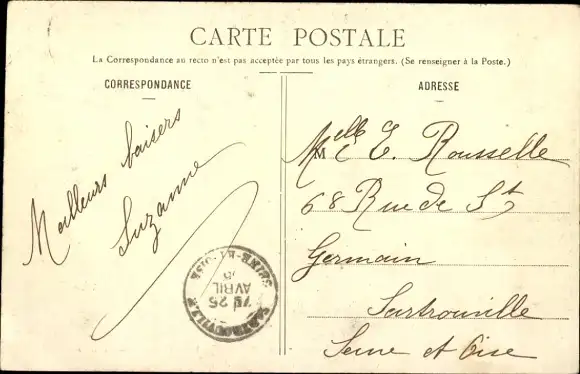 CARTE POSTALE
La Correspondance au recto n'est pas acceptée par tous les pays étrangers. (Se renseigner à la Poste.)
CORRESPONDANCE
Meilleurs baisers
Suzanne
ADRESSE
M elle E. Rousselle
68 Rue de St
Germain
Sartrouville
Seine et Oise
SARTROUVILLE
7 25
AVRIL
SEINE-ET-OISE